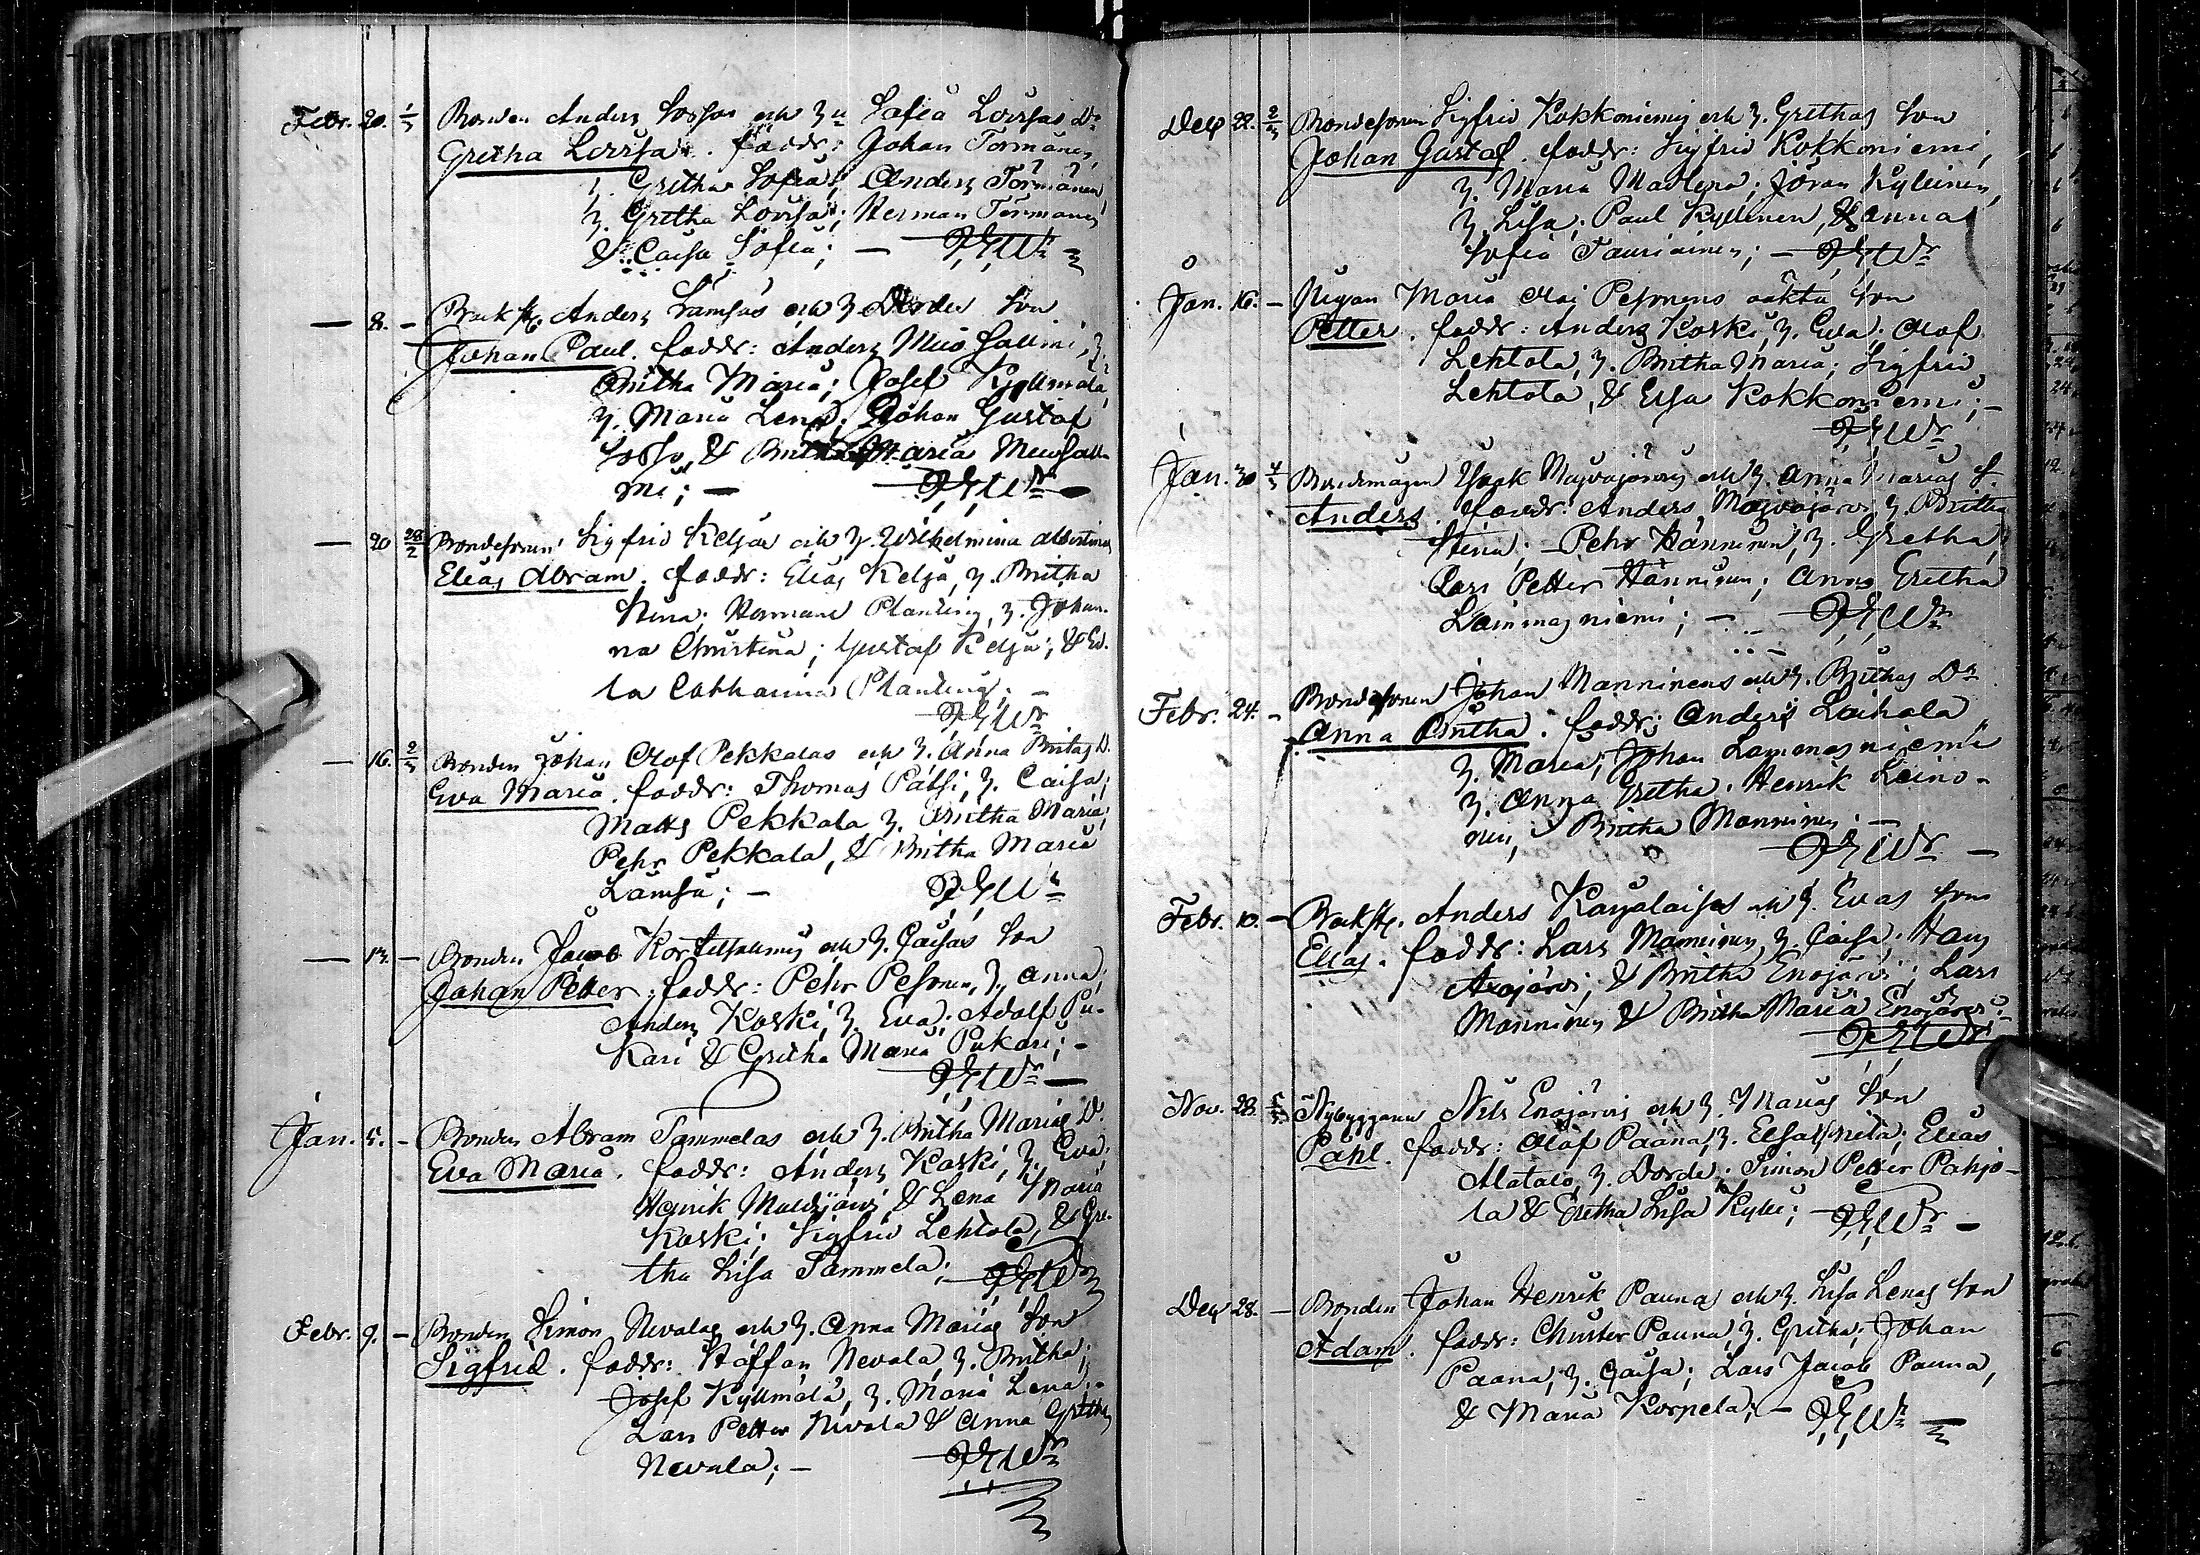 Febr. 20. 1/3 Bonden Anders Sossos och h. u Sofia Lovisas Dr
Gretha Lovisa. faddr: Johan Törmänen,
h. Gretha Sofia; Anders Törmänen,
h. Gretha Lovisa; Herman Törmänen
& Caisa Sofia; —
— 8. - Anders Lämsäs och h. Dordes Son
Johan Paul. faddr: Anders h.
Britha Maria; Josef Kyllmälä,
h. Maria Lena; Johan Gustaf
Sosso, & Britha Maria
mi; —
— 20 28/2 Bondesonen Sigfrid Keljas och h. Wilhelmina Albertinas
Elias Abram. faddr: Elias Kelja, h. Britha
Stina; Herman Planting, h. Johan-
na Christina; Gustaf Kelja; & Ed-
la Catharina Planting; —
— 16. 2/3 Bonden Johan Olof Pekkalas och h. Anna Britas D.
Eva Maria. faddr: Thomas Pätsi, h. Caisa;
Matts Pekkala h. Britha Maria;
Pehr Pekkala, & Britha Maria
Lämsä; —
— 13. - Bonden Jacob och h. Caisas Son
Johan Petter. faddr: Pehr Pesonen, h. Anna;
Anders Koski, h. Eva; Adolf Pu-
kari & Gretha Maria Pukari; —
Jan. 5. - Bonden Abram Tammelas och h. Britha Marias D.
Eva Maria. faddr: Anders Koski, h. Eva;
Henrik & Lena Maria
Koski; Sigfrid Lehtola, & Gre-
tha Lisa Tammela;
Febr. 9. - Bonden Simon Nevalas och h. Anna Marias Son
Sigfrid. faddr: Staffan Nevala, h. Britha;
Josef Kyllmälä, h. Maria Lena;
Lars Petter Nevala & Anna Gretha
Nevala; —
Dec 22. 2/3 Bondesonen Sigfrid Kokkoniemis och h. Grethas Son
Johan Gustaf. faddr: Sigfrid Kokkoniemi,
h. Maria Madlena; Jöran Kyllinen,
h. Lisa; Paul Kyllönen, & Anna
Sofia Tauriainen; —
Jan. 16. - Pigan Maria Olai Pesonens oäkta Son
Petter. faddr: Anders Koski, h. Eva; Olof
Lehtola, h. Britha Maria; Sigfrid
Lehtola, & Elsa Kokkoniemi; —
Jan. 30 4/3 Bondemågen Isaak och h. Anna Marias S.
Anders. faddr: Anders h. Britha
Stina; — Pehr Hänninen, h. Gretha;
Lars Petter Hänninen; Anna Gretha
Lammasniemi; —
Febr. 24. - Bondesonen Johan Manninens och h. Brithas Dr
Anna Britha. faddr: Anders Laihola
h. Maria; Johan Lammasniemi
h. Anna Gretha; Henrik Leino-
nen, Britha Manninen; —
Febr. 10. - Anders Karjalaises och h. Evas Son
Elias. faddr: Lars Manninen, h. Caisa; Hans
& Britha Enojärvi; Lars
Manninen & Britha Maria Enojärvi; —
Nov. 28. 5/3 Nybyggaren Nils Enojärvis och h. Marias Son
Pahl. faddr: Olof Paana, h. Elsa Greta; Elias
Alatalo, h. Dorde; Simon Petter Pahjo-
la & Gretha Lisa —
Dec 28. - Bonden Johan Henrik Paunas och h. Lisa Lenas Son
Adam. faddr: Christer Pauna, h. Gretha; Johan
Paana, h. Caisa; Lars Jacob Pauna,
& Maria Korpela; —